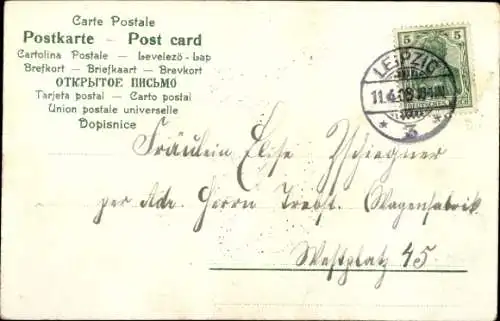 Carte Postale
Postkarte - Post card
Cartolina Postale - Levelező-Lap
Brefkort - Briefkaart - Brevkort
ОТКРЫТОЕ ПИСЬМО
Tarjeta postal - Carto postal
Union postale universelle
Dopisnice
5 5
LEIPZIG
11.4.08
* 3 *
Fräulein Elise Zschiegner
per Adr. Herrn Trebst. Wagenfabrik
Westplatz 45.